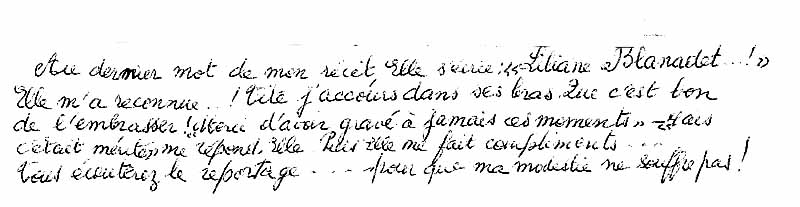 Au dernier mot de mon récit, Elle s'écrie : « Liliane Blanadet...! »
Elle m'a reconnue...! Vite j'accours dans ses bras. Que c'est bon
de l'embrasser ! « Merci d'avoir gravé à jamais ces moments » – « Mais
c'était mérité » me répond Elle. Puis Elle me fait compliments....
Vous écouterez le reportage.... pour que ma modestie ne souffre pas !